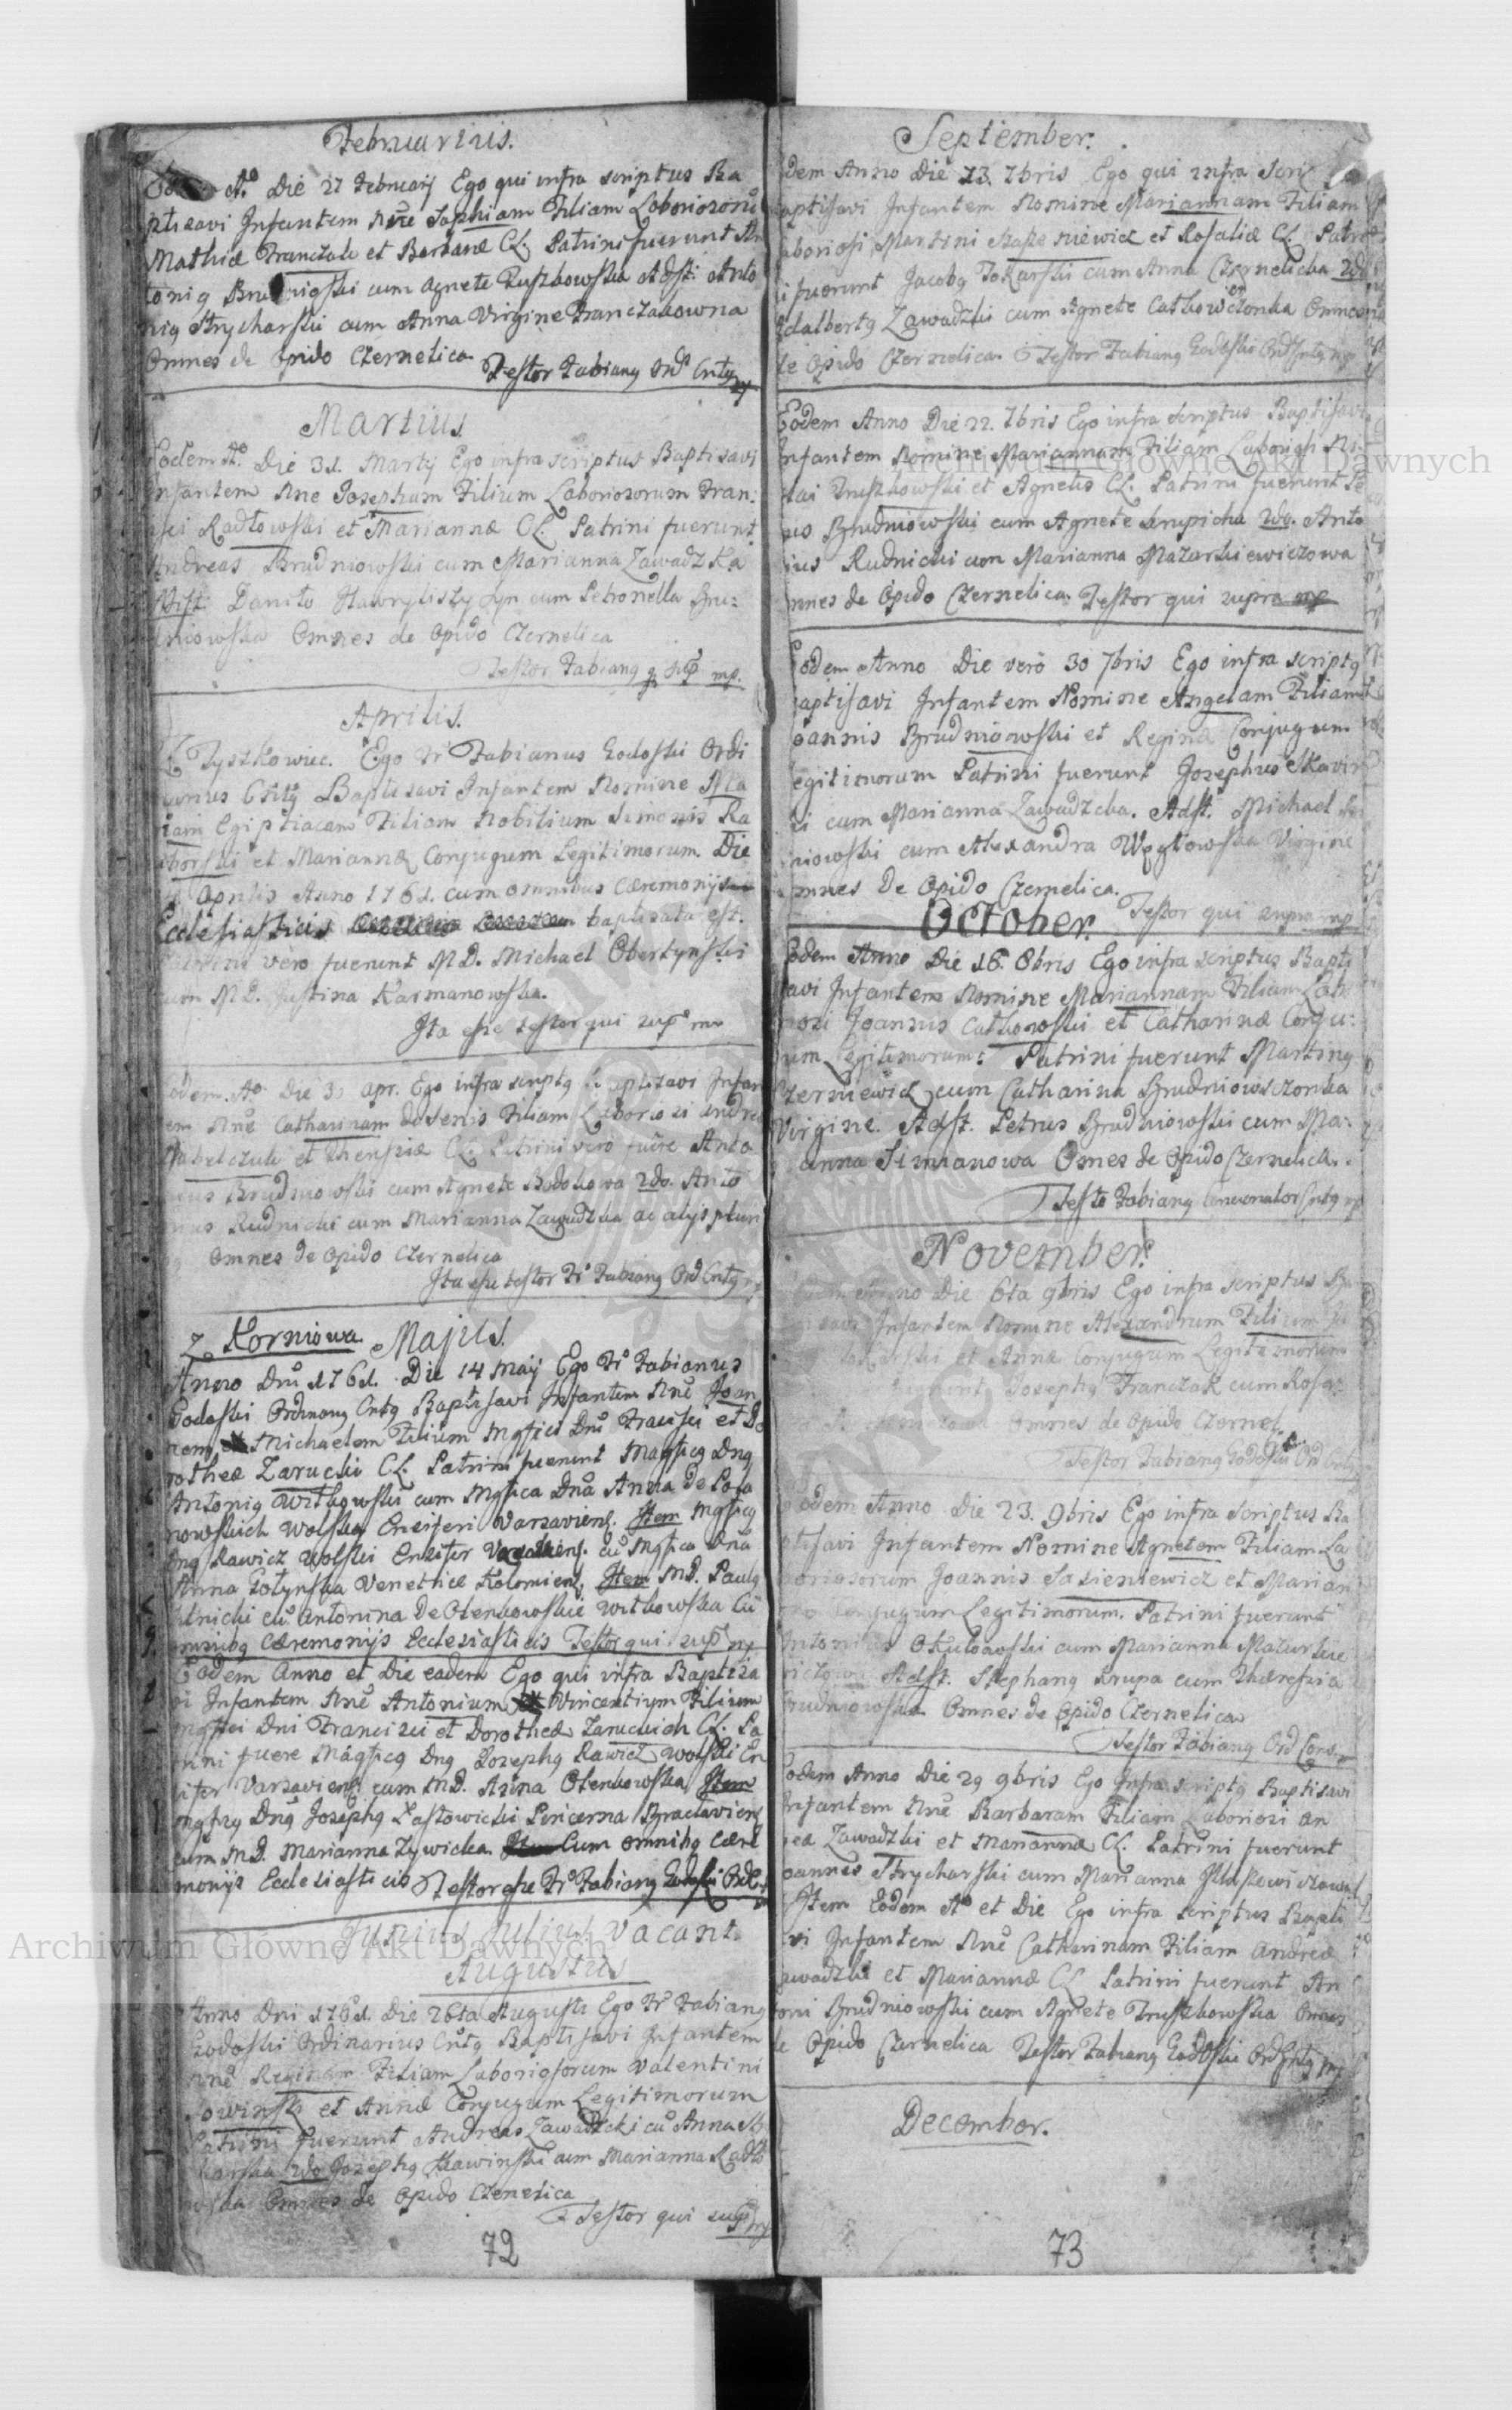 Februarius.
A.o Die 27 Februarij Ego qui infra scriptus Ba
ptisavi Infantem Nne Sophiam Filiam Laboriosoru
Mathiæ Franczak et Barbaræ CL. Patrini fuerunt An
toni9 cum Agnete Ruszkowska Adst: Anto
ni9 Strycharski cum Anna Virgine Franczakowna
Omnes de Opido Czernelica
Testor Fabian9 Ord Cnt9 mp
Martius.
Eodem A.o Die 31. Martij Ego infra scriptus Baptisavi
Infantem Nne Josephum Filium Laboriosorum Fran:
isci Radłowski et Mariannæ CL. Patrini fuerunt
Andreas Brudniowski cum Marianna Zawadzka
Adst: Daniło cum Petronella Bru:
dniowska Omnes de Opido Czernelica
Testor Fabian9 q sup mp.
Aprilis.
Z Tyszkowiec. Ego Fr Fabianus Godoski Ordi
narius Cnt9 Baptisavi Infantem Nomine Ma
riam Egiptiacam Filiam Nobilium Simonis Ra
borski et Mariannæ Conjugum Legitimorum. Die
Aprilis Anno 1761. cum omnibus Cæremonijs
Ecclesiasticis baptisata est.
Patrini vero fuerunt MD. Michael Obertynski
cum MD. Justina Karmanowska.
Ita esse testor qui sup mp
Eodem A.o Die 30 apr. Ego infra script9 Baptisavi Infan
tem Nne Catharinam Filiam Laboriosi Andreæ
et Theresiæ CL. Patrini vero fuere Anto
nius Brudniowski cum Agnete Bodakowa 2do. Anto
nius Rudnicki cum Marianna Zawadzka ac alijs pluri
Omnes de Opido Czernelica
Ita esse testor Fr Fabian9 Ord Cnt9 mp
Z Korniowa. Majus.
Anno Dni 1761. Die 14 Maij Ego Fr Fabianus
Godoski Ordinari9 Cnt9 Baptisavi Infantem Nne Joan
nem Michaelem Filium Mgfici Dni Francisci et Do
rotheæ Zarucki CL. Patrini fuerunt Magfic9 Dn9
Antoni9 Witkowski cum Mgfica Dna Anna De
nowskich Wolska Ensiferi Varsaviens. Item Mgfic9
Dn9 Rawicz Wolski Ensifer cu Mgfica Dna
Anna Gołynska Venetrice Kolomiens. Item MD. Paul9
cu Antonina De Otenkowskie Witkowska Cu
omnib9 Cæremonijs Ecclesiasticis Testor qui sup mp
Eodem Anno et Die eadem Ego qui infra Baptisa
vi Infantem Nne Antonium Vincentium Filium
Mgfici Dni Francisci et Dorotheæ Zaruckich CL. Pa
trini fuere Magfic9 Dn9 Joseph9 Rawicz Wolski En
sifer Varsaviens cum MD. Anna Otenkowska Item
Mgfic9 Dn9 Joseph9 Łastowiecki Pincerna Braclaviens
cum MD. Marianna Zywicka Cum omnib9 Cære
monijs Ecclesiasticis Testor esse Fr Fabian9 Godoski Ord C
Junius, Julius, vacant.
Augustus
Anno Dni 1761. Die 26ta Augusti Ego Fr Fabian9
Godoski Ordinarius Cnt9 Baptisavi Infantem
Nne Reginam Filiam Laboriosorum Valentini
et Annæ Conjugum Legitimorum
Patrini fuerunt Andreas Zawadzki cu Anna
2do Joseph9 Skawinski cum Marianna Radło
wska Omnes de Opido Czernelica
Testor qui sup mp
72
September.
Eodem Anno Die 13. 7bris Ego qui infra Scri
Baptisavi Infantem Nomine Mariannam Filiam
Laboriosi Martini et Rosaliæ CL. Patri
ni fuerunt Jacob9 Tokarski cum Anna Czernelicka 2do
Adalbert9 Zawadzki cum Agnete Catkowczonka Omnes
de Opido Czernelica. Testor Fabian9 Godoski Ord Cnt9 mp
Eodem Anno Die 22. 7bris Ego infra scriptus Baptisavi
Infantem Nomine Mariannam Filiam Laboriosi Ni
colai Truszkowski et Agnetis CL. Patrini fuerunt Pe
trus Brudniowski cum Agnete Krupicha 2do. Anto
nius Rudnicki cum Marianna Mazurkiewiczowa
Omnes de Opido Czernelica. Testor qui supra mp
Eodem Anno Die vero 30 7bris Ego infra script9
Baptisavi Infantem Nomine Angelam Filiam
Joannis Brudniowski et Reginæ Conjugum
Legitimorum Patrini fuerunt Josephus Skawin
ski cum Marianna Zawadzcka. Adst. Michael
niowski cum Alexandra Węgłowska Virgine
Omnes De Opido Czernelica.
Testor qui supra mp
October.
Eodem Anno Die 16. 8bris Ego infra scriptus Bapti
savi Infantem Nomine Mariannam Filiam Labo
riosi Joannis Catkowski et Catharinæ Conju:
gum Legitimorum: Patrini fuerunt Martin9
cum Catharina Brudniowsczonka
Virgine. Adst. Petrus Brudniowski cum Ma:
rianna Simianowa Omnes de Opido Czernelica.
Testor Fabian9 Concionator Cnt9 mp
November.
Eodem Anno Die 6ta 9bris Ego infra scriptus Ba
ptisavi Infantem Nomine Alexandrum Filium
et Annæ Conjugum Legitimorum
fuerunt Joseph9 Franczak cum Rosa
Omnes de Opido Czernel.
Testor Fabian9 Godoski Ord Cnt9
Eodem Anno Die 23. 9bris Ego infra scriptus Ba
ptisavi Infantem Nomine Agnetem Filiam La
boriosorum Joannis Sasieniewicz et Marian
næ Conjugum Legitimorum. Patrini fuerunt
Antonius cum Marianna Mazurkie
wiczowa Adst. Stephan9 Krupa cum Theresia
Brudniowska Omnes de Opido Czernelica
Testor Fabian9 Ord Conv
Eodem Anno Die 29 9bris Ego Infra script9 Baptisavi
Infantem Nne Barbaram Filiam Laboriosi An
dreæ Zawadzki et Mariannæ CL. Patrini fuerunt
Joannes Strycharski cum Marianna
Item Eodem A.o et Die Ego infra scriptus Bapti
savi Infantem Nne Catharinam Filiam Andreæ
Zawadzki et Mariannæ CL Patrini fuerunt An
toni Brudniowski cum Agnete Truszkowska Omnes
de Opido Czernelica Testor Fabian9 Godoski Ord Cnt9 mp
December.
73
Archiwum Główne Akt Dawnych
Archiwum Główne Akt Dawnych